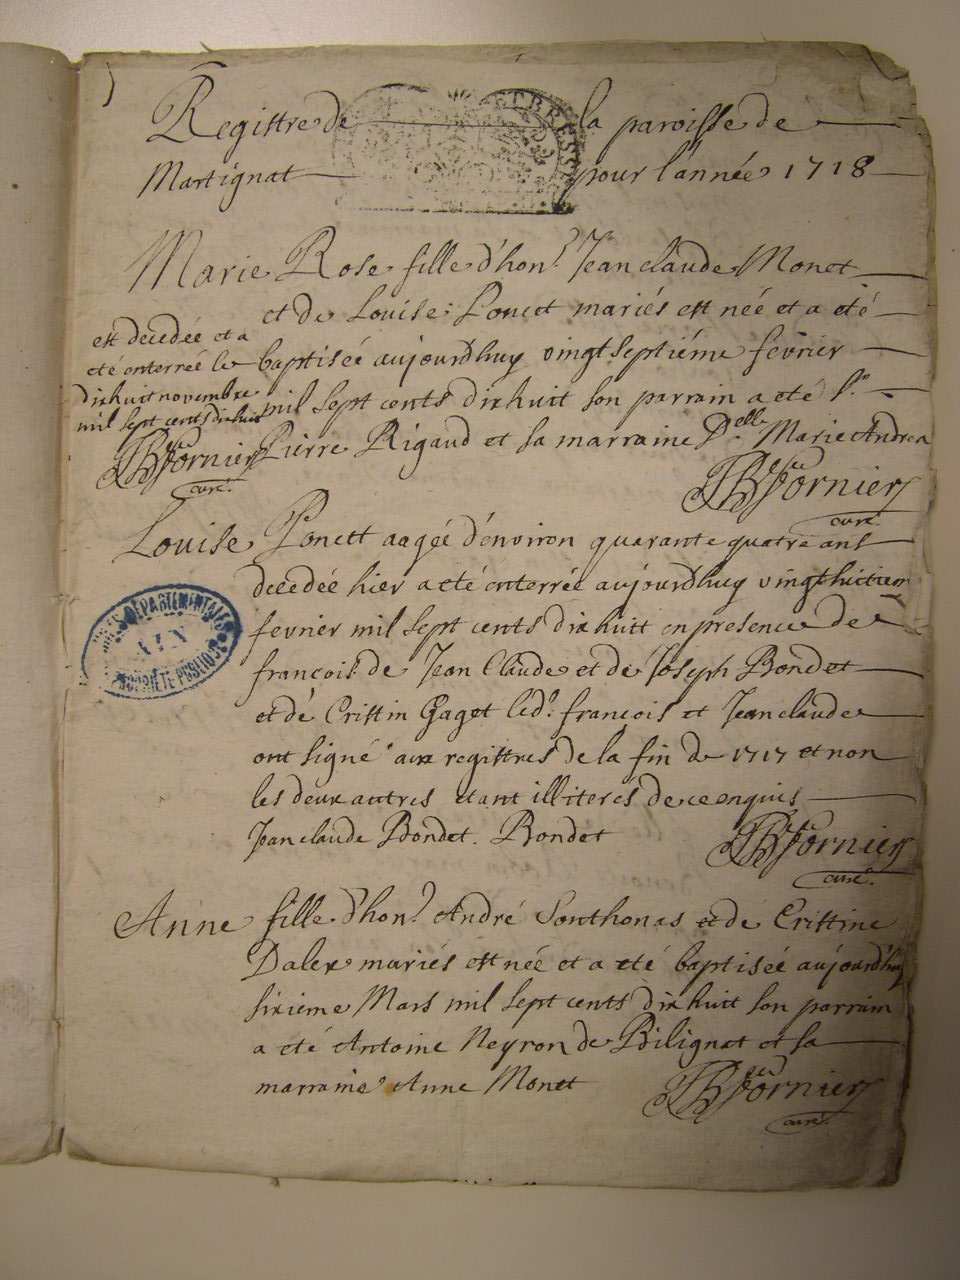 Registre de la paroisse de
Martignat pour l'année 1718
Marie Rose fille d'hon. Jean claude Monet
et de Louise Poncet mariés est née et a eté
baptisée aujourdhuy vingt septiéme fevrier
mil sept cents dixhuit son parrain a eté Sr.
Pierre Rigaud et sa marraine Delle Marie Andrea
est decedée et a
eté enterrée le
dixhuit novembre
mil sept cents dixhuit
Fornier
curé.
Fornier
curé.
Louise Ponett aagée d'environ quarante quatre ans
decedée hier a eté enterrée aujourdhuy vingthuictiem
fevrier mil sept cents dixhuit en presence de
françois de Jean Claude et de Joseph Bondet
et de Cristin Gaget led. françois et Jean claude
ont signé aux registres de la fin de 1717 et non
les deux autres etant illiterés de ce enquis
Jean claude Bondet. Bondet
Fornier
curé.
ARCHIVES DÉPARTEMENTALES
AIN
PROPRIÉTÉ PUBLIQUE
Anne fille d'hon. André Sonthonas et de Cristine
Dalex mariés est née et a eté baptisée aujourdhuy
sixieme Mars mil sept cents dixhuit son parrain
a eté Antoine Neyron de Bilignat et sa
marraine Anne Monet
Fornier
curé.